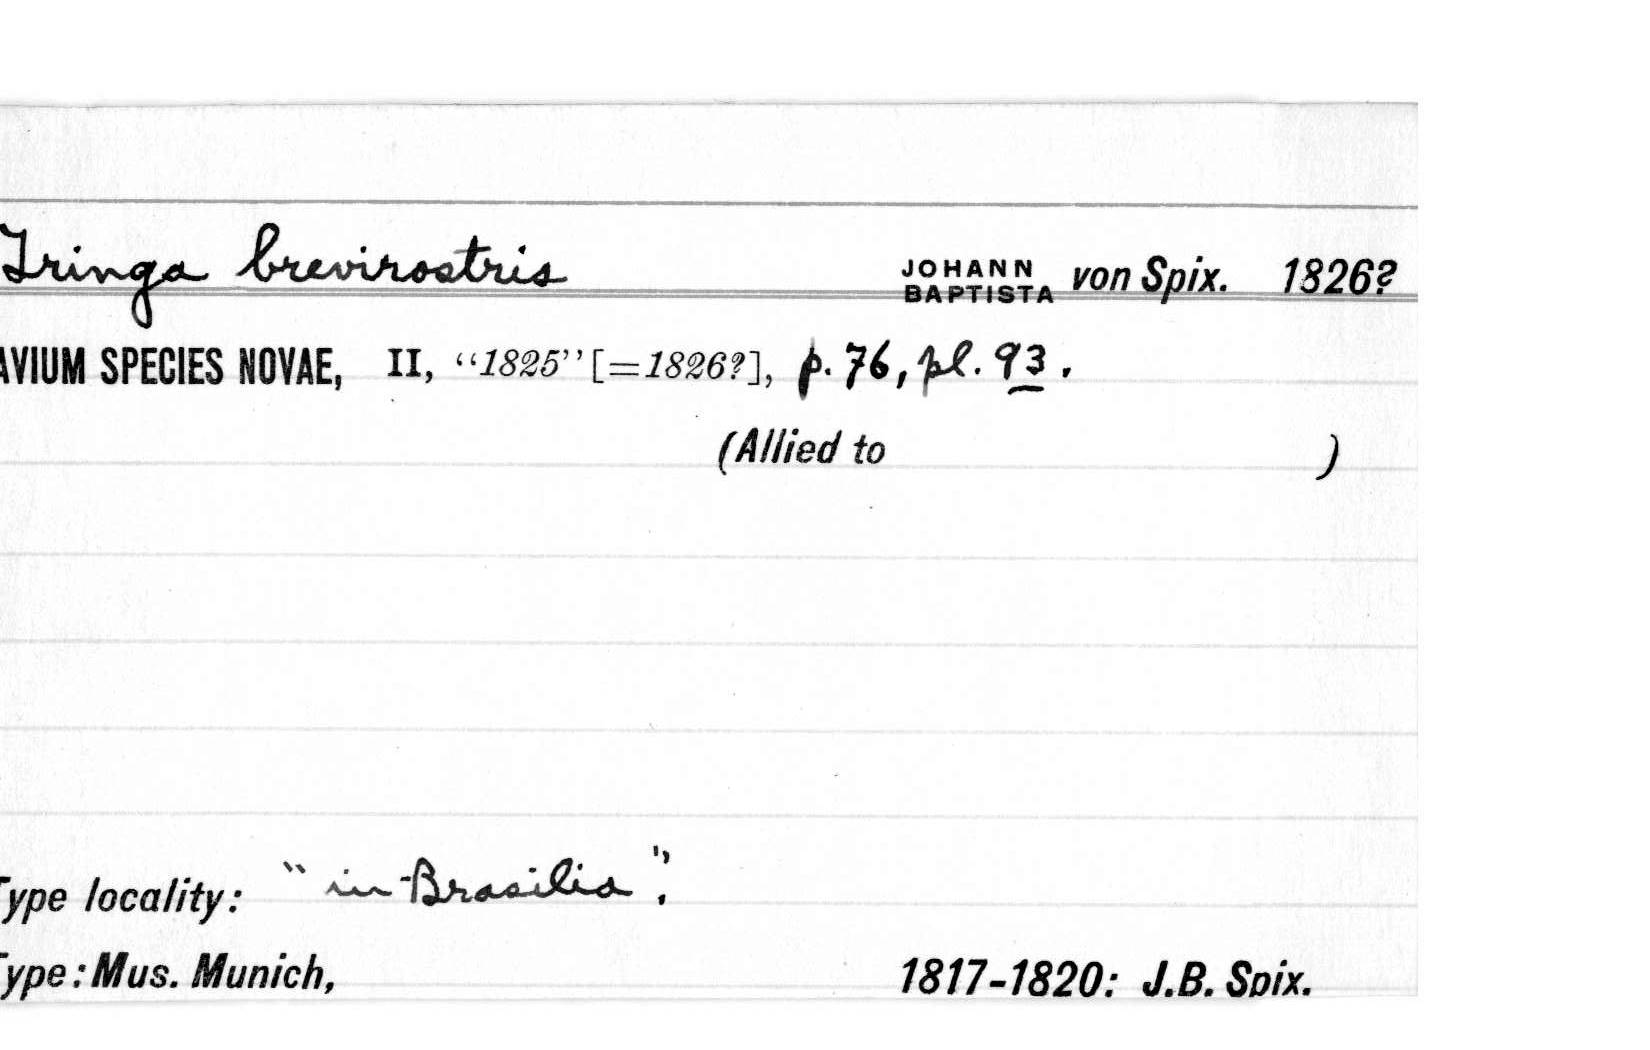 Tringa brevirostris JOHANN BAPTISTA von Spix. 1826?
AVIUM SPECIES NOVAE, II, “1825” [=1826?], p. 76, pl. 93.
(Allied to )
Type locality: "in Brasilia".
Type: Mus. Munich, 1817-1820: J.B. Spix.